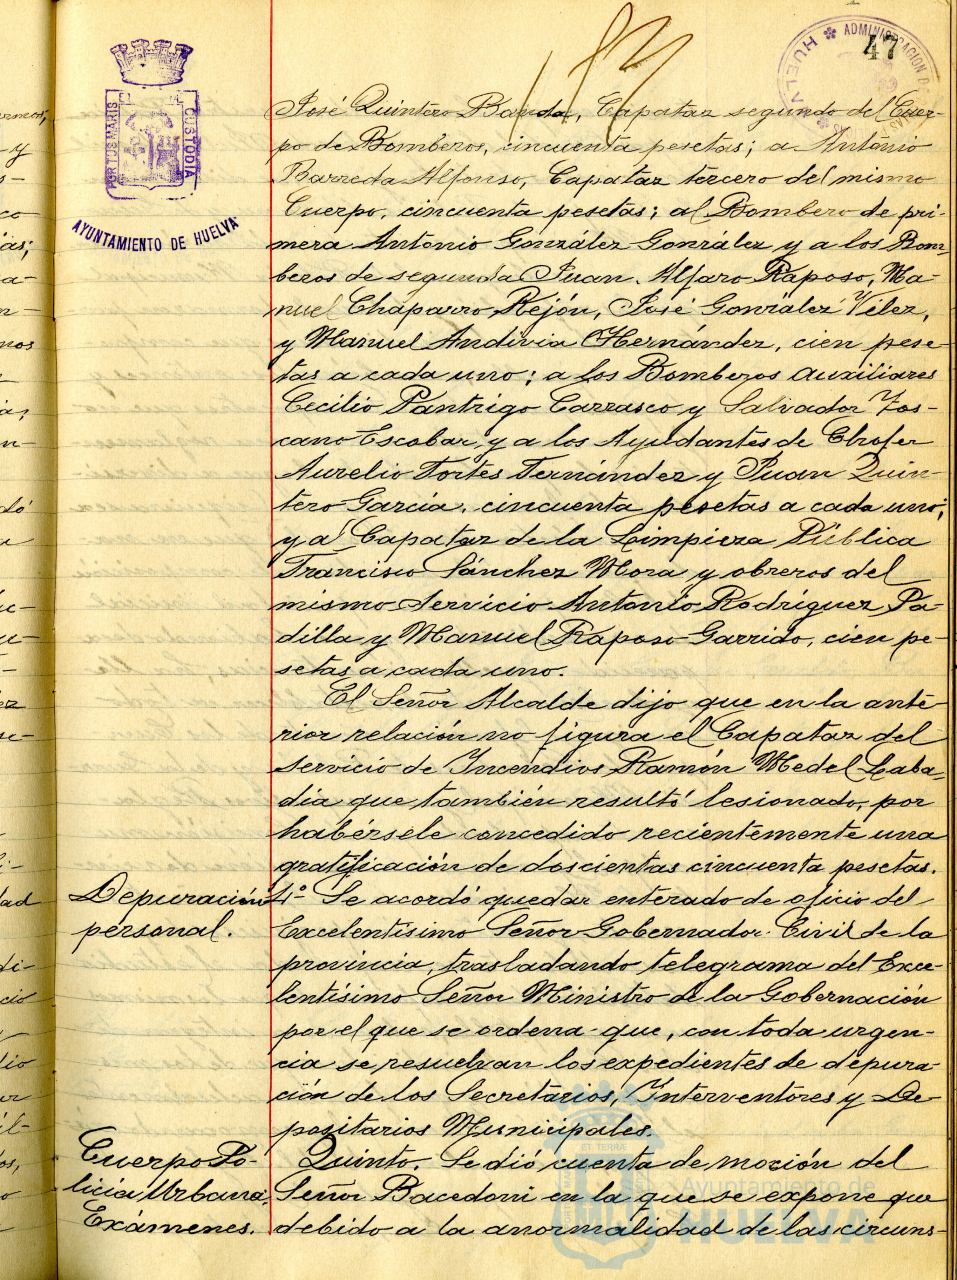 47
José Quintero Banda, Capataz segundo del Cuer-
po de Bomberos, cincuenta pesetas; a Antonio
Barreda Alfonso, Capataz tercero del mismo
Cuerpo, cincuenta pesetas; al Bombero de pri-
mera Antonio González González y a los Bom-
beros de segunda Juan Alfaro Raposo, Ma-
nuel Chaparro Rejón, José González Vélez,
y Manuel Andivia Hernández, cien pese-
tas a cada uno; a los Bomberos auxiliares
Cecilio Pantrigo Carrasco y Salvador Tos-
cano Escobar, y a los Ayudantes de Chofer
Aurelio Fortes Fernández y Juan Quin-
tero García, cincuenta pesetas a cada uno;
y al Capataz de la Limpieza Pública
Francisco Sánchez Mora y obreros del
mismo Servicio Antonio Rodríguez Pa-
dilla y Manuel Raposo Garrido, cien pe-
setas a cada uno.
El Señor Alcalde dijo que en la ante-
rior relación no figura el Capataz del
Servicio de Incendios Ramón Medel Laba-
día que también resultó lesionado, por
habérsele concedido recientemente una
gratificación de doscientas cincuenta pesetas.
Depuración
personal.
4º Se acordó quedar enterado de oficio del
Excelentísimo Señor Gobernador Civil de la
provincia, trasladando telegrama del Exce-
lentísimo Señor Ministro de la Gobernación
por el que se ordena que, con toda urgen-
cia se resuelvan los expedientes de depura-
ción de los Secretarios, Interventores y De-
positarios Municipales.
Cuerpo Po-
licía Urbana,
Exámenes.
Quinto. Se dió cuenta de moción del
Señor Bacedoni en la que se expone que
debido a la anormalidad de las circuns-
PORTUS MARIS
CUSTODIA
AYUNTAMIENTO DE HUELVA
HUELVA
ADMINISTRACION DE
Ayuntamiento de
HUELVA